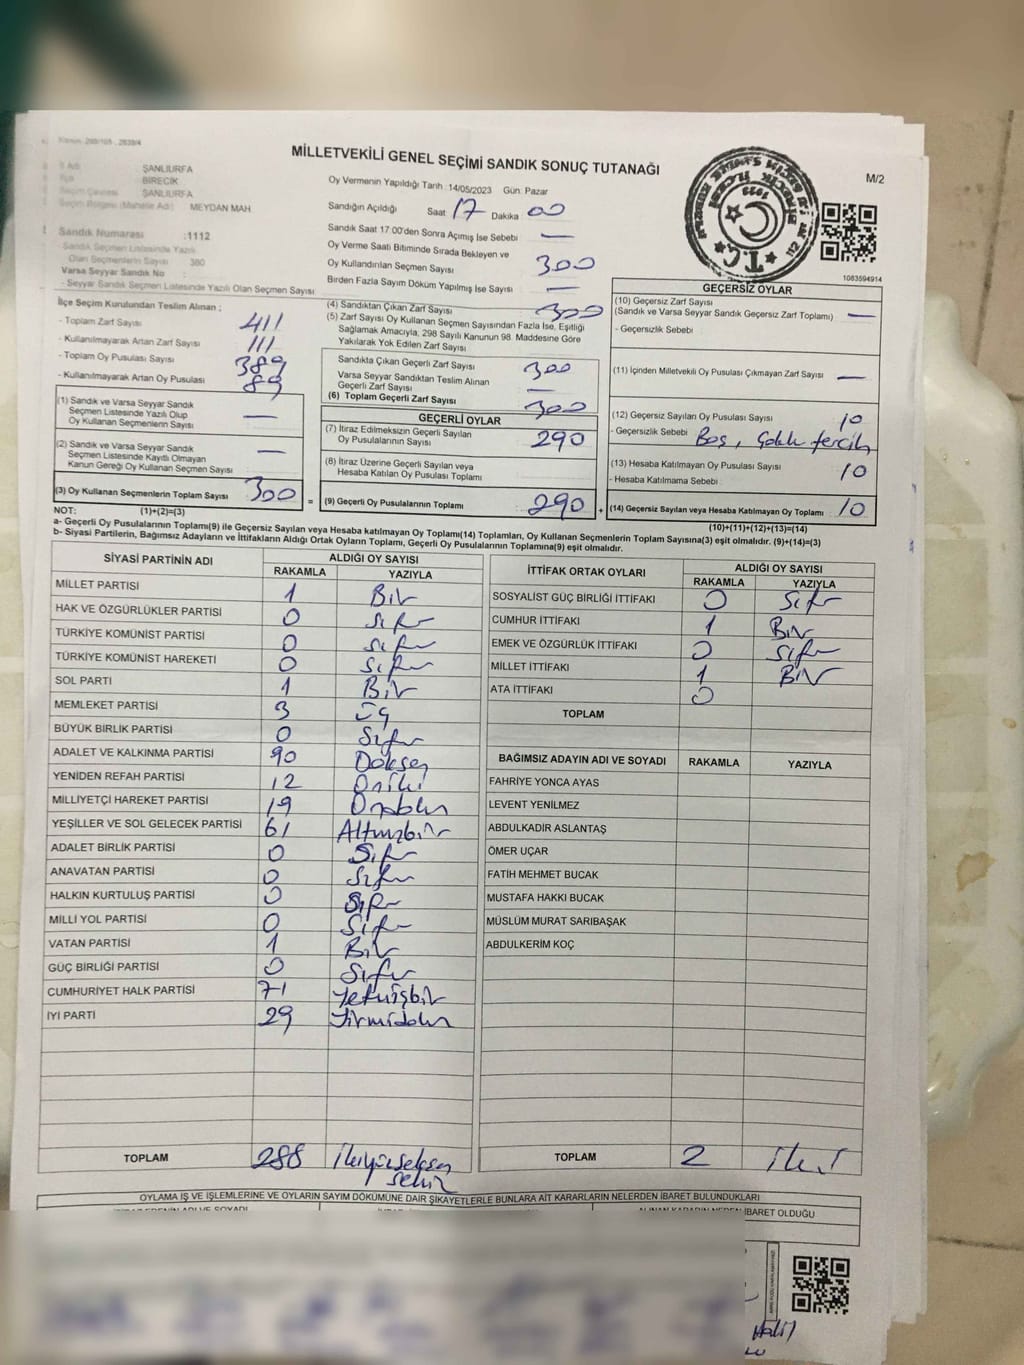 MİLLETVEKİLİ GENEL SEÇİMİ SANDIK SONUÇ TUTANAĞI
M/2
ŞANLIURFA
BİRECİK
ŞANLIURFA
Seçim Bölgesi (Mahalle Adı) : MEYDAN MAH.
Sandık Numarası :1112
Sandık Seçmen Listesinde Yazılı
Olan Seçmenlerin Sayısı : 380
Varsa Seyyar Sandık No :
- Seyyar Sandık Seçmen Listesinde Yazılı Olan Seçmen Sayısı
Oy Vermenin Yapıldığı Tarih : 14/05/2023 Gün: Pazar
Sandığın Açıldığı Saat 17 Dakika 00
Sandık Saat 17.00'den Sonra Açımış İse Sebebi —
Oy Verme Saati Bitiminde Sırada Bekleyen ve
Oy Kullandırılan Seçmen Sayısı 300
Birden Fazla Sayım Döküm Yapılmış İse Sayısı —
1083594914
İlçe Seçim Kurulundan Teslim Alınan ;
- Toplam Zarf Sayısı 411
- Kullanılmayarak Artan Zarf Sayısı 111
- Toplam Oy Pusulası Sayısı 389
- Kullanılmayarak Artan Oy Pusulası 89
(1) Sandık ve Varsa Seyyar Sandık
Seçmen Listesinde Yazılı Olup
Oy Kullanan Seçmenlerin Sayısı —
(2) Sandık ve Varsa Seyyar Sandık
Seçmen Listesinde Kayıtlı Olmayan
Kanun Gereği Oy Kullanan Seçmen Sayısı —
(3) Oy Kullanan Seçmenlerin Toplam Sayısı 300
(4) Sandıktan Çıkan Zarf Sayısı 300
(5) Zarf Sayısı Oy Kullanan Seçmen Sayısından Fazla İse, Eşitliği
Sağlamak Amacıyla, 298 Sayılı Kanunun 98. Maddesine Göre
Yakılarak Yok Edilen Zarf Sayısı
Sandıkta Çıkan Geçerli Zarf Sayısı 300
Varsa Seyyar Sandıktan Teslim Alınan
Geçerli Zarf Sayısı —
(6) Toplam Geçerli Zarf Sayısı 300
GEÇERLİ OYLAR
(7) İtiraz Edilmeksizin Geçerli Sayılan
Oy Pusulalarının Sayısı 290
(8) İtiraz Üzerine Geçerli Sayılan veya
Hesaba Katılan Oy Pusulası Toplamı
= (9) Geçerli Oy Pusulalarının Toplamı 290
GEÇERSİZ OYLAR
(10) Geçersiz Zarf Sayısı
(Sandık ve Varsa Seyyar Sandık Geçersiz Zarf Toplamı) —
- Geçersizlik Sebebi :
(11) İçinden Milletvekili Oy Pusulası Çıkmayan Zarf Sayısı —
(12) Geçersiz Sayılan Oy Pusulası Sayısı 10
- Geçersizlik Sebebi : Boş, Çoklu tercih
(13) Hesaba Katılmayan Oy Pusulası Sayısı 10
- Hesaba Katılmama Sebebi :
+ (14) Geçersiz Sayılan veya Hesaba Katılmayan Oy Toplamı 10
NOT: (1)+(2)=(3)
(10)+(11)+(12)+(13)=(14)
a- Geçerli Oy Pusulalarının Toplamı(9) ile Geçersiz Sayılan veya Hesaba katılmayan Oy Toplamı(14) Toplamları, Oy Kullanan Seçmenlerin Toplam Sayısına(3) eşit olmalıdır. (9)+(14)=(3)
b- Siyasi Partilerin, Bağımsız Adayların ve İttifakların Aldığı Ortak Oyların Toplamı, Geçerli Oy Pusulalarının Toplamına(9) eşit olmalıdır.
SİYASİ PARTİNİN ADI ALDIĞI OY SAYISI
RAKAMLA YAZIYLA
MİLLET PARTİSİ 1 Bir
HAK VE ÖZGÜRLÜKLER PARTİSİ 0 Sıfır
TÜRKİYE KOMÜNİST PARTİSİ 0 Sıfır
TÜRKİYE KOMÜNİST HAREKETİ 0 Sıfır
SOL PARTİ 1 Bir
MEMLEKET PARTİSİ 3 Üç
BÜYÜK BİRLİK PARTİSİ 0 Sıfır
ADALET VE KALKINMA PARTİSİ 90 Doksan
YENİDEN REFAH PARTİSİ 12 Oniki
MİLLİYETÇİ HAREKET PARTİSİ 19 Ondokuz
YEŞİLLER VE SOL GELECEK PARTİSİ 61 Altmışbir
ADALET BİRLİK PARTİSİ 0 Sıfır
ANAVATAN PARTİSİ 0 Sıfır
HALKIN KURTULUŞ PARTİSİ 0 Sıfır
MİLLİ YOL PARTİSİ 0 Sıfır
VATAN PARTİSİ 1 Bir
GÜÇ BİRLİĞİ PARTİSİ 0 Sıfır
CUMHURİYET HALK PARTİSİ 71 Yetmişbir
İYİ PARTİ 29 Yirmidokuz
TOPLAM 288 İkiyüzseksen
sekiz
İTTİFAK ORTAK OYLARI ALDIĞI OY SAYISI
RAKAMLA YAZIYLA
SOSYALİST GÜÇ BİRLİĞİ İTTİFAKI 0 Sıfır
CUMHUR İTTİFAKI 1 Bir
EMEK VE ÖZGÜRLÜK İTTİFAKI 0 Sıfır
MİLLET İTTİFAKI 1 Bir
ATA İTTİFAKI 0
TOPLAM
BAĞIMSIZ ADAYIN ADI VE SOYADI RAKAMLA YAZIYLA
FAHRİYE YONCA AYAS
LEVENT YENİLMEZ
ABDULKADİR ASLANTAŞ
ÖMER UÇAR
FATİH MEHMET BUCAK
MUSTAFA HAKKI BUCAK
MÜSLÜM MURAT SARIBAŞAK
ABDULKERİM KOÇ
TOPLAM 2 İki
OYLAMA İŞ VE İŞLEMLERİNE VE OYLARIN SAYIM DÖKÜMÜNE DAİR ŞİKAYETLERLE BUNLARA AİT KARARLARIN NELERDEN İBARET BULUNDUKLARI
İBARET OLDUĞU
Halil